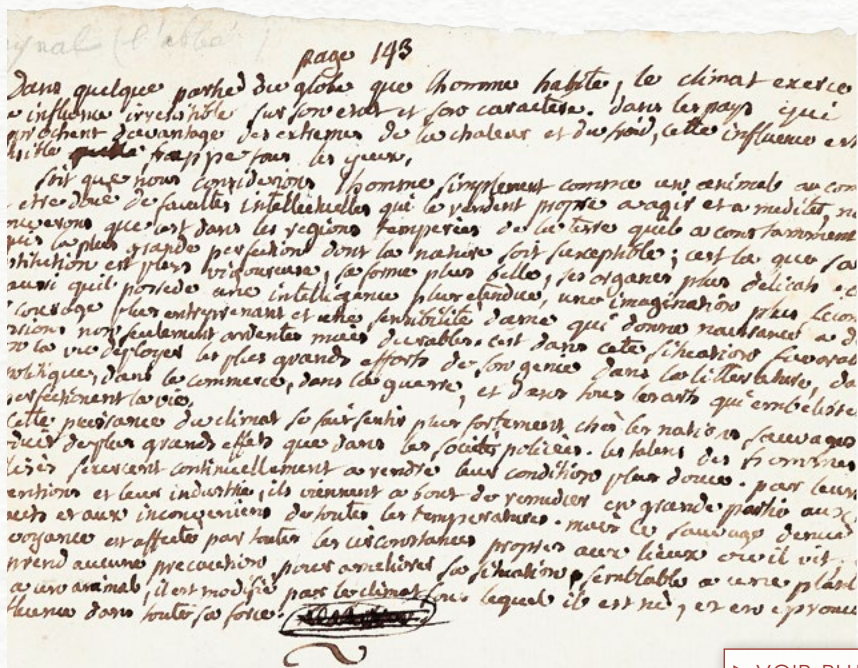 ynal (l'abbé)
page 143
Dans quelque partie du globe que l'homme habite, le climat exerce
e influence irresistible sur son etat et son caractere. dans les pays qui
prochent davantage des extremes de la chaleur et du froid, cette influence est
sible frappe tous les yeux.
soit que nous considerions l'homme simplement comme un animal ou com
etre doué de facultes intellectuelles qui le rendent propre a agir et a mediter, no
uverons que c'est dans les regions temperées de la terre qu'il a constamment
quis la plus grande perfection dont la nature soit susceptible; c'est la que sa
stitution est plus vigoureuse, sa forme plus belle, ses organes plus délicats. c
aussi qu'il possede une intelligence plus etendue, une imagination plus fecon
courage plus entreprenant et une sensibilité d'ame qui donne naissance a d
ssions non seulement ardentes mais durables. c'est dans cete situation favorab
on la vu deployer les plus grands efforts de son genie dans la litterature, da
politique, dans le commerce, dans la guerre, et dans tous les arts qui embelisse
perfectionent la vie.
cette puissance du climat se fait sentir plus fortement chés les nations sauvages
duit de plus grands effets que dans les societés policées. les talens des hommes
lisés s'exercent continuellement a rendre leur condition plus douce. par leurs
entions et leur industrie, ils viennent a bout de remedier en grande partie aux
auts et aux inconveniens de toutes les temperatures. mais le sauvage denué
voyance est affecté par toutes les circonstances propres aux lieux ou il vit.
prend aucune precaution pour ameliorer sa situation. semblable a une plant
a un animal, il est modifié par le climat sous lequel il est né, et en eprouve
fluence dans toute sa force.
VOIR PLU